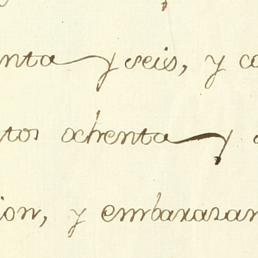 enta y seis, y co
tos ochenta y
ion, y embarazan